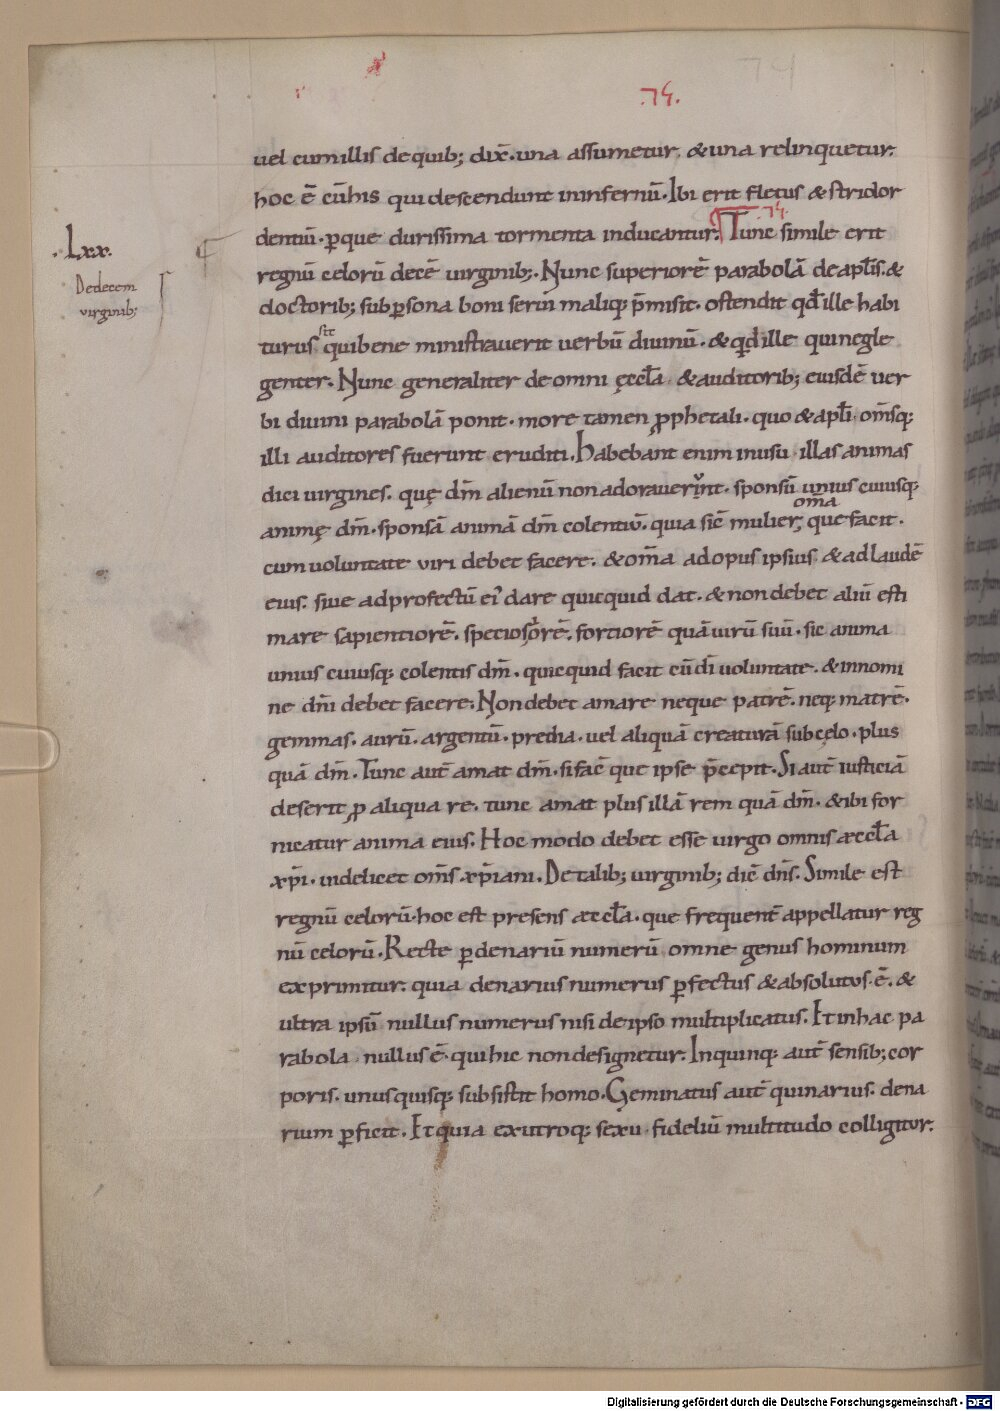 74
.74.
uel cumillis dequib; dix̄. una assumetur. &una relinquetur.
hoc ē cū his qui descendunt ininfernū. Ibi erit fletus & stridor
dentiū. ꝑque durissima tormenta inducantur. Tunc simile erit
.74.
.Lxx.
Dedecem
virginib;
regnū celorū decē uirginib;. Nunc superiorē parabolā deapl̄is. &
doctorib; sub ꝑsona boni serui maliq; p̄misit. ostendit qđ ille habi
turus sit quibene ministrauerit uerbū diuinū. & qd ille quinegle
genter. Nunc generaliter deomni ęccl̄a. & auditorib; eiusdē uer
bi diuini parabolā ponit. more tamen ꝓphetali. quo & apl̄i. om̄sq;
illi auditores fuerunt eruditi. Habebant enim inusu illas animas
dici uirgines. quę dm̄ alienū nonadorauerint. sponsū unius cuiusq;
animę dm̄. sponsā animā dm̄ colentiū. quia sic̄ mulier, om̄a que facit.
cum uoluntate viri debet facere. & om̄a adopus ipsius & adlaudē
eius. siue adprofectū ei' dare quicquid dat. & nondebet aliū esti
mare sapientiorē. speciosiorē. fortiorē quā uirū suū. sic anima
unius cuiusq; colentis dm̄. quicquid facit cū dī uoluntate. & innomi
ne dn̄i debet facere. Nondebet amare neque patrē. neq; matrē.
gemmas. aurū. argentū. predia. uel aliquā creaturā subcęlo. plus
quā dm̄. Tunc aut̄ amat dm̄. sifac̄ que ipse p̄cepit. Si aut̄ iusticiā
deserit ꝓ aliqua re. tunc amat plus illā rem quā dm̄. & ibi for
nicatur anima eius. Hoc modo debet esse uirgo omnis æccl̄a
xp̄i. uidelicet om̄s xp̄iani. Detalib; uirginib; dic̄ dn̄s. Simile est
regnū celorū. hoc est presens æccl̄a. que frequent̄ appellatur reg
nū celorū. Recte ꝑ denariū numerū omne genus hominum
exprimitur. quia denarius numerus ꝑfectus & absolutus ē. &
ultra ipsū nullus numerus nisi deipso multiplicatus. Et inhac pa
rabola nullus ē. quihic nondesignetur. Inquinq; aut̄ sensib; cor
poris. unusquisq; subsistit homo. Geminatus aut̄ quinarius. dena
rium ꝑficit. Et quia exutroq; sexu fideliū multitudo colligitur.
Digitalisierung gefördert durch die Deutsche Forschungsgemeinschaft - DFG